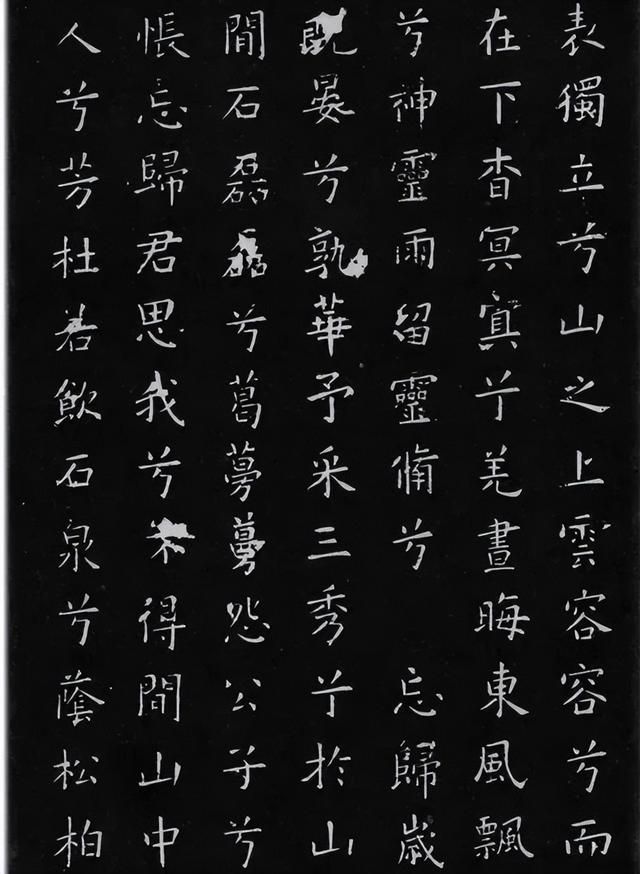 表獨立兮山之上雲容容兮而
在下杳冥寘兮羌晝晦東風飄
兮神靈雨留靈脩兮忘歸歲
既晏兮孰華予采三秀兮於山
間石磊磊兮葛蔓蔓怨公子兮
悵忘歸君思我兮不得間山中
人兮芳杜若飲石泉兮蔭松柏